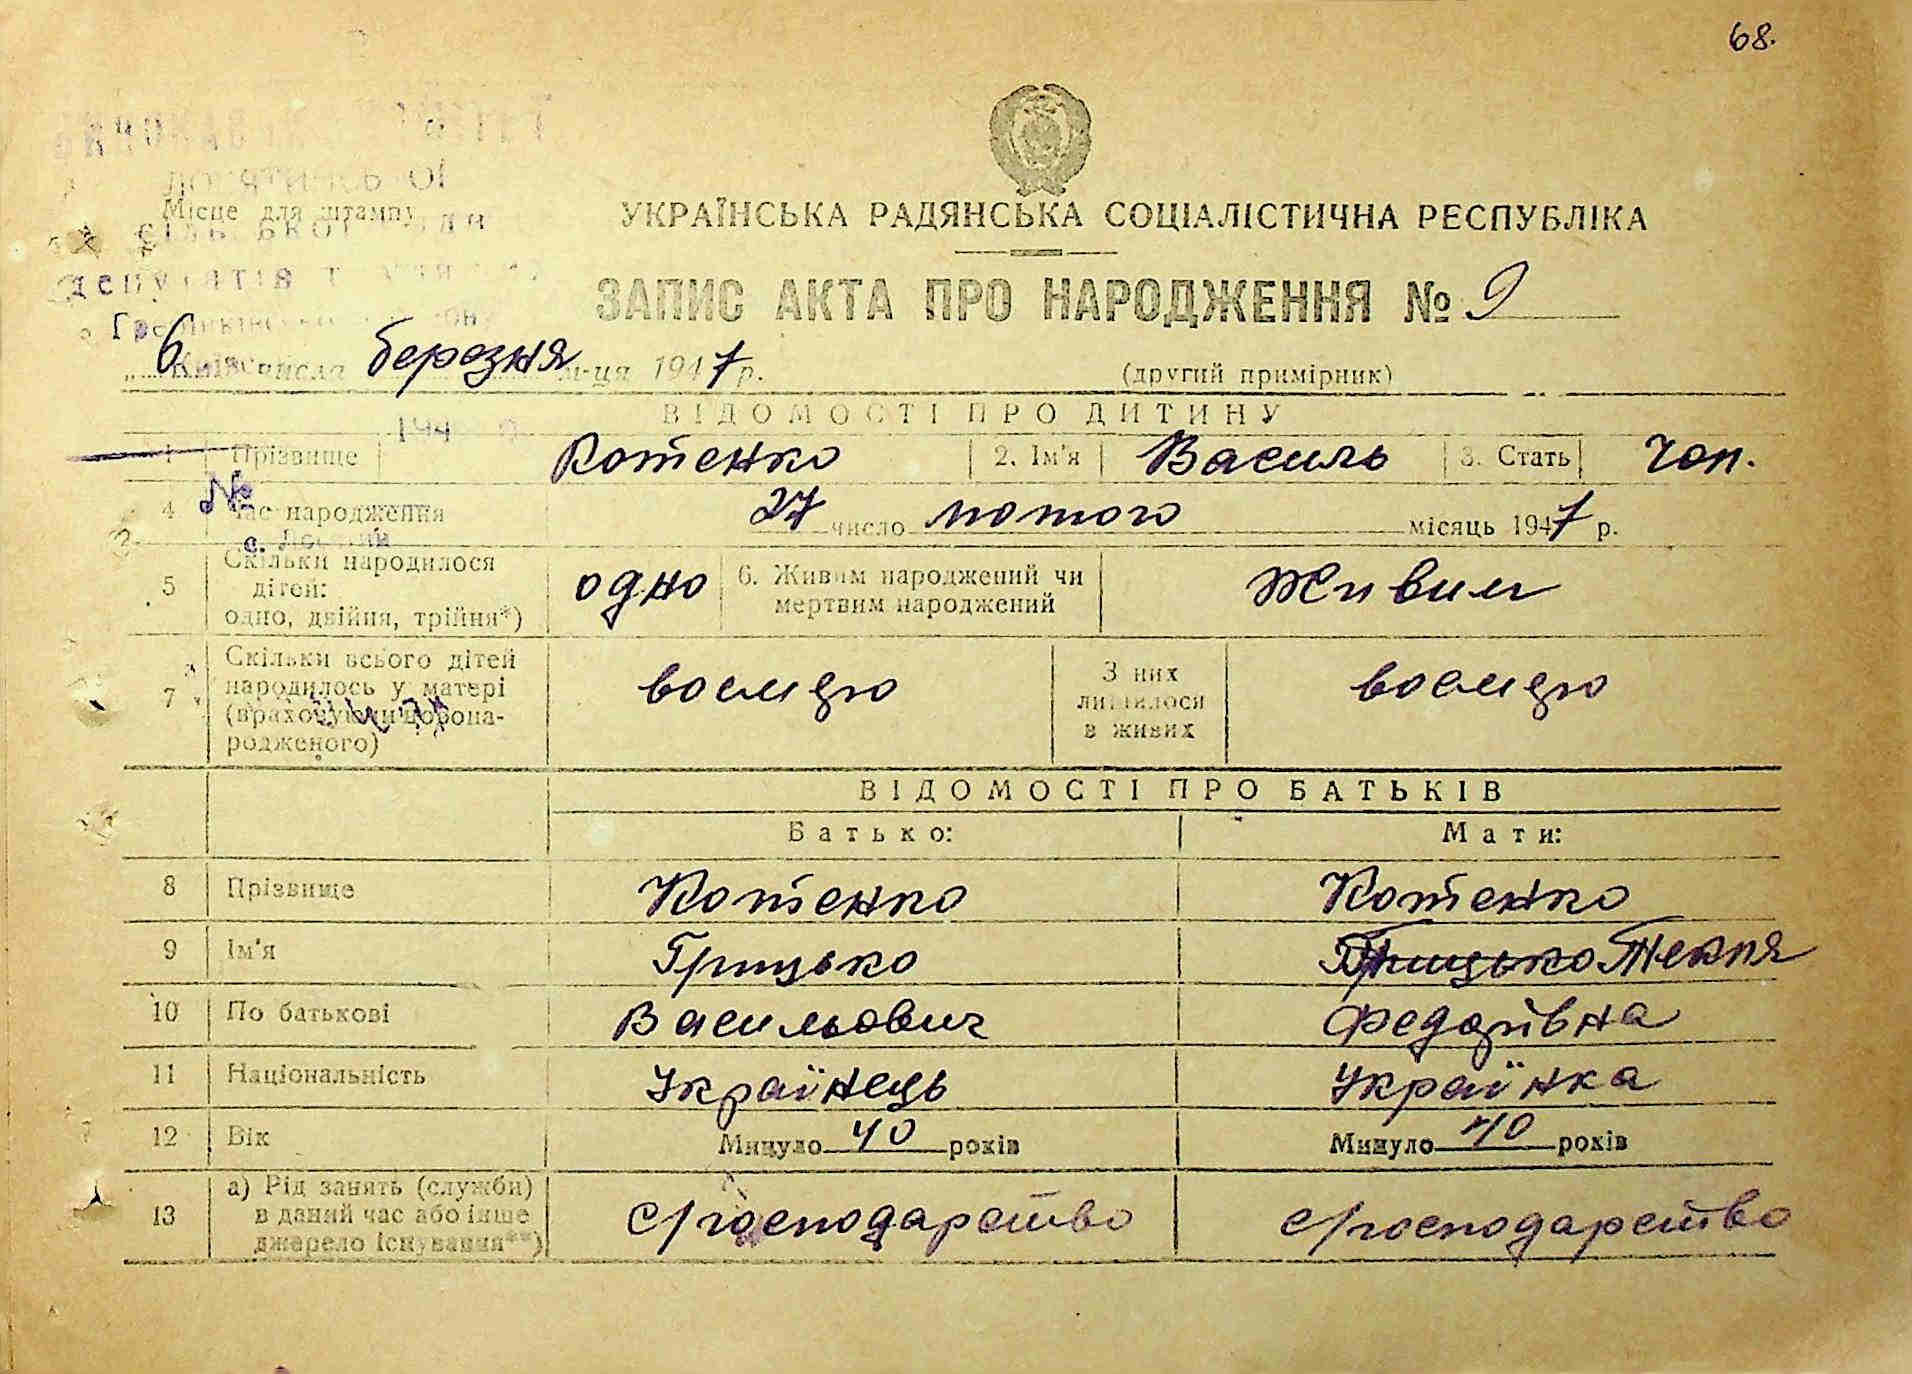 68.
Місце для штампу
УКРАЇНСЬКА РАДЯНСЬКА СОЦІАЛІСТИЧНА РЕСПУБЛІКА
депутатів
ЗАПИС АКТА ПРО НАРОДЖЕННЯ № 9
„ 6 числа березня м-ця 1947 р. (другий примірник)
ВІДОМОСТІ ПРО ДИТИНУ
1 Прізвище Котенко 2. Ім'я Василь 3. Стать Чол.
№
4 Час народження 27 число лютого місяць 1947 р.
5 Скільки народилося дітей: одно, двійня, трійня*) одно 6. Живим народжений чи мертвим народжений Живим
7 Скільки всього дітей народилось у матері (враховуючи новонародженого) восмеро З них лишилося в живих восмеро
ВІДОМОСТІ ПРО БАТЬКІВ
Батько: Мати:
8 Прізвище Котенко Котенко
9 Ім'я Грицько Грицько Текля
10 По батькові Васильович Федорівна
11 Національність Українець Українка
12 Вік Минуло 40 років Минуло 40 років
13 а) Рід занять (служби) в даний час або інше джерело існування**) с/господарство с/господарство